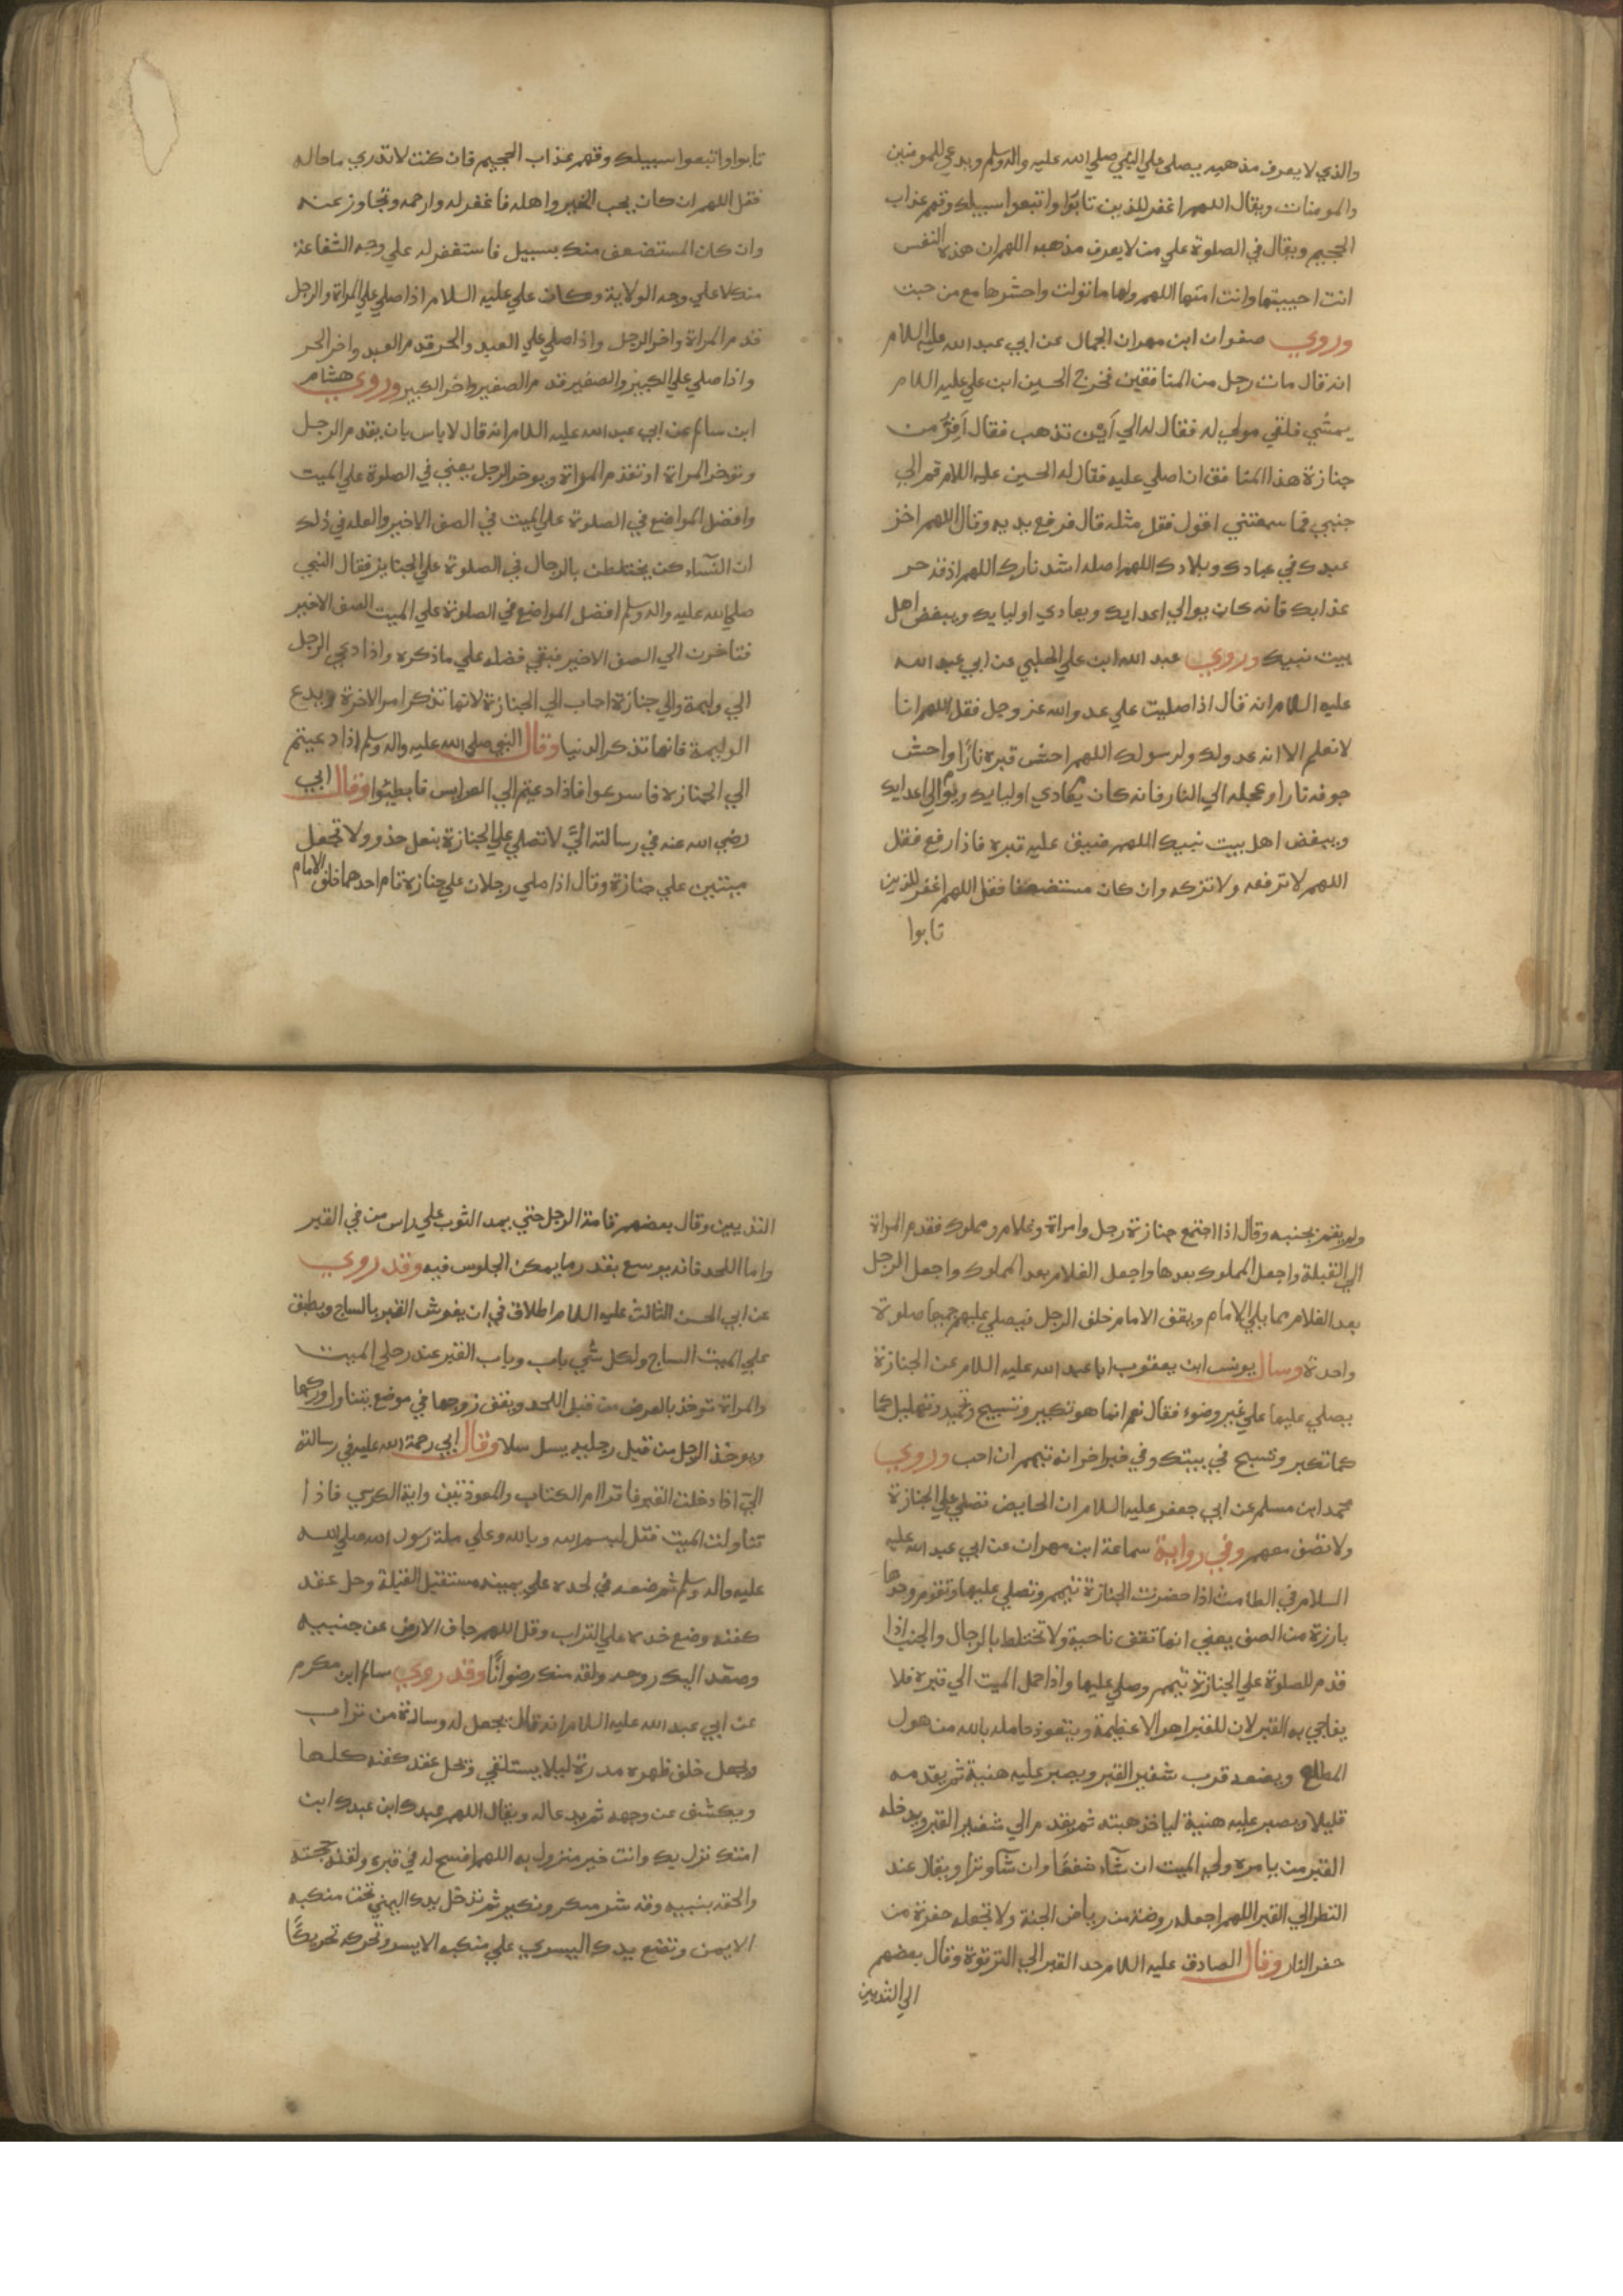 والذي لا يعرف مذهبه يصلى علي النبي صلي الله عليه واله وسلم ويدعي للمومنين
والمومنات ويقال اللهم اغفر للذين تابوا واتبعوا سبيلك وقهم عذاب
الجحيم ويقال في الصلوة علي من لا يعرف مذهبه اللهم ان هذه النفس
انت احييتها وانت امتها اللهم ولها ما تولت واحشرها مع من حبت
وروي صفوان ابن مهران الجمال عن ابي عبد الله عليه السلام
انه قال مات رجل من المنافقين فخرج الحسين ابن علي عليه السلام
يمشي فلقي مولي له فقال له الي اين تذهب فقال افر من
جنازة هذا المنافق ان اصلي عليه فقال له الحسين عليه السلام قم الي
جنبي فما سمعتني اقول فقل مثله قال فرفع يديه وقال اللهم اخز
عبدك في عبادك وبلادك اللهم اصله اشد نارك اللهم اذقه حر
عذابك فانه كان يوالي اعدايك ويعادي اوليايك ويبغض اهل
بيت نبيك وروي عبد الله ابن علي الحلبي عن ابي عبد الله
عليه السلام انه قال اذا صليت علي عدو الله عز وجل فقل اللهم انا
لا نعلم الا انه عدو لك ولرسولك اللهم احش قبره نارًا واحش
جوفه نارا وعجله الي النار فانه كان يعادي اوليايك ويوالي اعدايك
ويبغض اهل بيت نبيك اللهم ضيق عليه قبره فاذا رفع فقل
اللهم لا ترفعه ولا تزكه وان كان مستضعفا فقل اللهم اغفر للذين
تابوا
تابوا واتبعوا سبيلك وقهم عذاب الجحيم فان كنت لا تدري ما حاله
فقل اللهم ان كان يحب الخير واهله فاغفر له وارحمه وتجاوز عنه
وان كان المستضعف منك بسبيل فاستغفر له علي وجه الشفاعة
منك لا علي وجه الولاية وكان علي عليه السلام اذا صلي علي المراة والرجل
قدم المراة واخر الرجل واذا صلي علي العبد والحر قدم العبد واخر الحر
واذا صلي علي الكبير والصغير قدم الصغير واخر الكبير وروي هشام
ابن سالم عن ابي عبد الله عليه السلام انه قال لا باس بان يقدم الرجل
وتوخر المراة او تقدم المراة ويوخر الرجل يعني في الصلوة علي الميت
وافضل المواضع في الصلوة علي الميت في الصف الاخير والعله في ذلك
ان النسآء كن يختلطن بالرجال في الصلوة علي الجنايز فقال النبي
صلي الله عليه واله وسلم افضل المواضع في الصلوة علي الميت الصف الاخير
فتاخرن الي الصف الاخير فبقي فضله علي ما ذكره واذا دعي الرجل
الي وليمة والي جنازة اجاب الي الجنازة لانها تذكر امر الاخرة ويدع
الوليمة فانها تذكر الدنيا وقال النبي صلي الله عليه واله وسلم اذا دعيتم
الي الجنازة فاسرعوا فاذا دعيتم الي العرايس فابطيئوا وقال ابي
رضي الله عنه في رسالته اليّ لا تصلي علي الجنازة بنعل حذو ولا تجعل
ميتين علي جنازة وقال اذا صلي رجلان علي جنازة قام احدهما خلف الامام
ولم يقم بجنبه وقال اذا اجتمع جنازة رجل وامراة وغلام ومملوك فقدم المراة
الي القبلة واجعل المملوك بعدها واجعل الغلام بعد المملوك واجعل الرجل
بعد الغلام مما يلي الامام ويقف الامام خلف الرجل فيصلي عليهم جميعا صلوة
واحدة وسال يونس ابن يعقوب ابا عبد الله عليه السلام عن الجنازة
يصلي عليها علي غير وضوء فقال نعم انما هو تكبير وتسبيح وتحميد وتهليل كما
كما تكبر وتسبح في بيتك وفي خبر اخر انه تيمم ان احب وروي
محمد ابن مسلم عن ابي جعفر عليه السلام ان الحايض تصلي علي الجنازة
ولا تصف معهم وفي رواية سماعة ابن مهران عن ابي عبد الله عليه
السلام في الطامث اذا حضرت الجنازة تتيمم وتصلي عليها وتقوم وحدها
بارزة من الصف يعني انها تقف ناحية ولا تختلط بالرجال والجنب اذا
قدم للصلوة علي الجنازة تيمم وصلي عليها واذا حمل الميت الي قبره فلا
يفاجي به القبر لان للقبر اهوالا عظيمة ويتعوذ حامله بالله من هول
المطلع ويضعه قرب شفير القبر ويصبر عليه هنية ثم يقدمه
قليلا ويصبر عليه هنية لياخذ هبته ثم يقدم الي شفير القبر ويدخله
القبر من يامره ولي الميت ان شآء شفعًا وان شآء وترا ويقال عند
النظر الي القبر اللهم اجعله روضة من رياض الجنة ولا تجعله حفرة من
حفر النار وقال الصادق عليه السلام حد القبر الي الترقوة وقال بعضهم
الي الثديين
الثديين وقال بعضهم قامة الرجل حتي يمد الثوب علي راس من في القبر
واما اللحد فانه يوسع بقدر ما يمكن الجلوس فيه وقد روي
عن ابي الحسن الثالث عليه السلام اطلاق في ان يفرش القبر بالساج ويطبق
علي الميت الساج ولكل شي باب وباب القبر عند رجلي الميت
والمراة توخذ بالعرض من قبل اللحد ويقف زوجها في موضع يتناول وركها
ويوخذ الرجل من قبل رجليه يسل سلا وقال ابي رحمة الله عليه في رسالته
اليّ اذا دخلت القبر فاقرا ام الكتاب والمعوذتين واية الكرسي فاذا
تناولت الميت فقل بسم الله وبالله وعلي ملة رسول الله صلي الله
عليه واله وسلم ثم ضعه في لحده علي يمينه مستقبل القبلة وحل عقد
كفنه وضع خده علي التراب وقل اللهم جاف الارض عن جنبيه
وصعد اليك روحه ولقه منك رضوانًا وقد روي سالم ابن مكرم
عن ابي عبد الله عليه السلام انه قال يجعل له وسادة من تراب
ويجعل خلف ظهره مدرة ليلا يستلقي وتحل عقد كفنه كلها
ويكشف عن وجهه ثم يدعا له ويقال اللهم عبدك ابن عبدك ابن
امتك نزل بك وانت خير منزول به اللهم افسح له في قبره ولقنه حجته
والحقه بنبيه وقه شر منكر ونكير ثم تدخل يدك اليمني تحت منكبه
الايمن وتضع يدك اليسري علي منكبه الايسر وتحركه تحريكًا